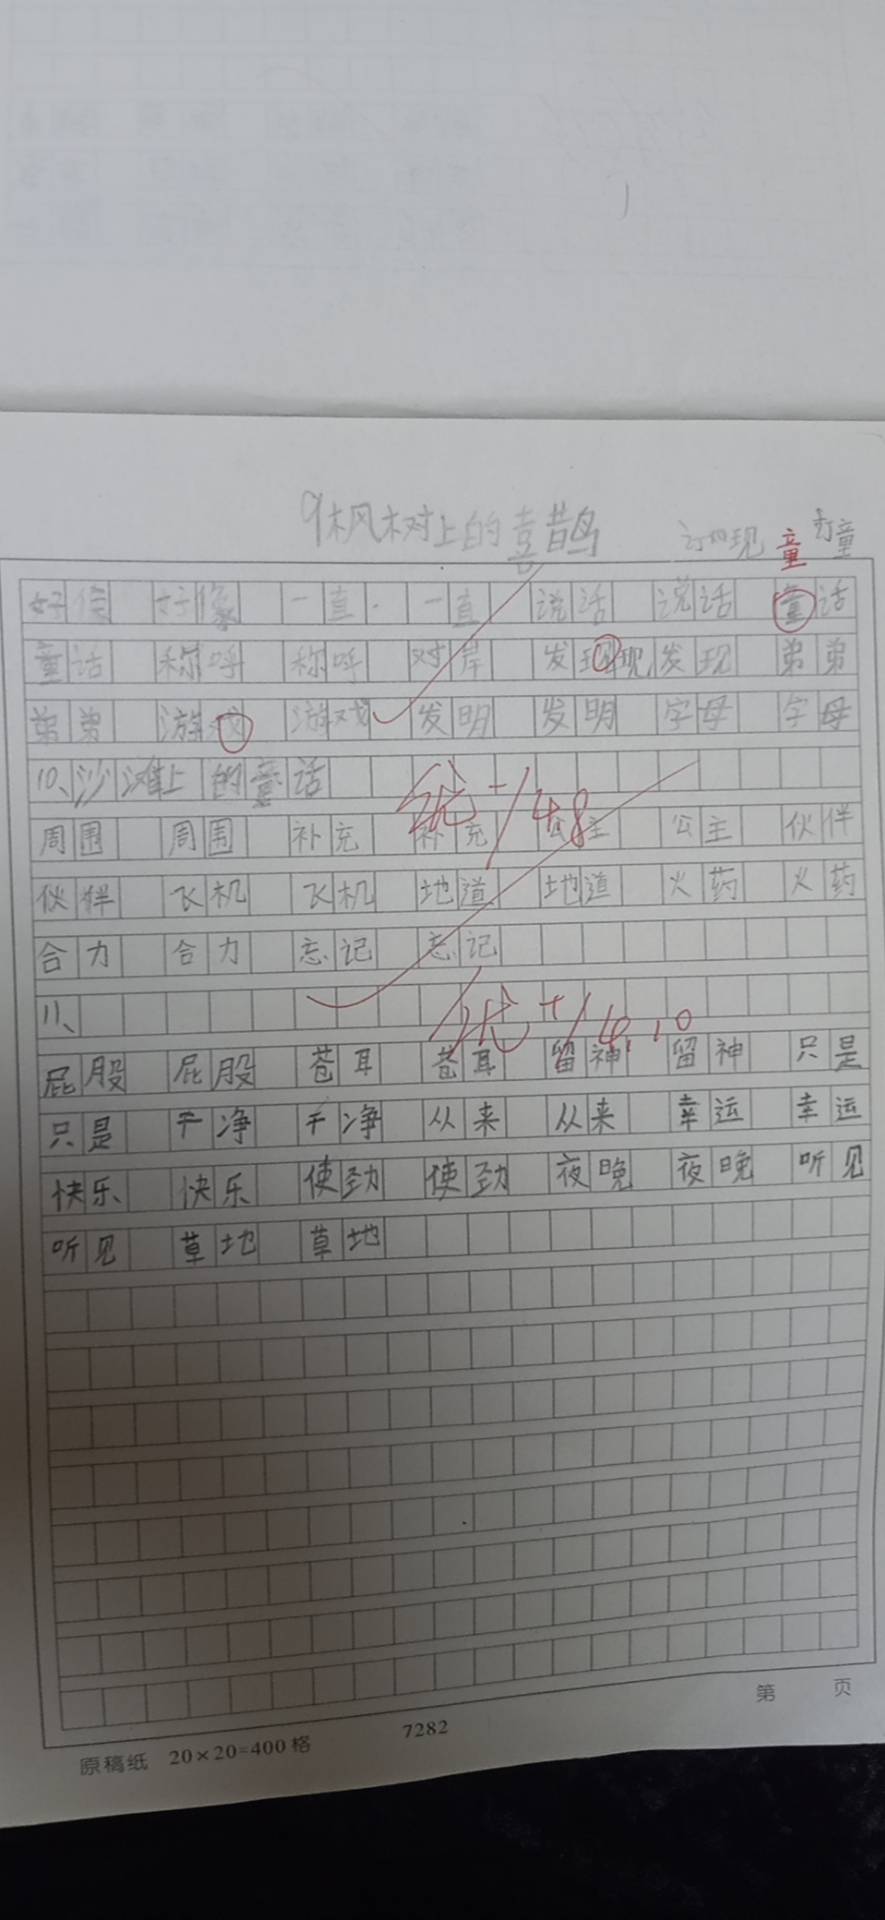 9枫树上的喜鹊 订正现 童 童
好像 好像 一直 一直 说话 说话 童话
童话 称呼 称呼 对岸 发现现 发现 弟弟
弟弟 游戏 游戏 发明 发明 字母 字母
10、沙滩上的童话
优-/4.8
周围 周围 补充 补充 公主 公主 伙伴
伙伴 飞机 飞机 地道 地道 火药 火药
合力 合力 忘记 忘记
11、
优+/4.10
屁股 屁股 苍耳 苍耳 留神 留神 只是
只是 干净 干净 从来 从来 幸运 幸运
快乐 快乐 使劲 使劲 夜晚 夜晚 听见
听见 草地 草地
原稿纸 20×20=400格 7282 第 页